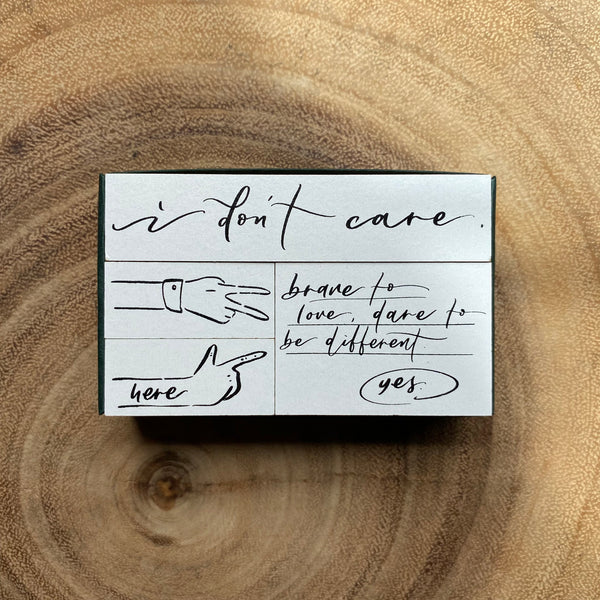 i don't care.
brave to
love, dare to
be different
yes.
here